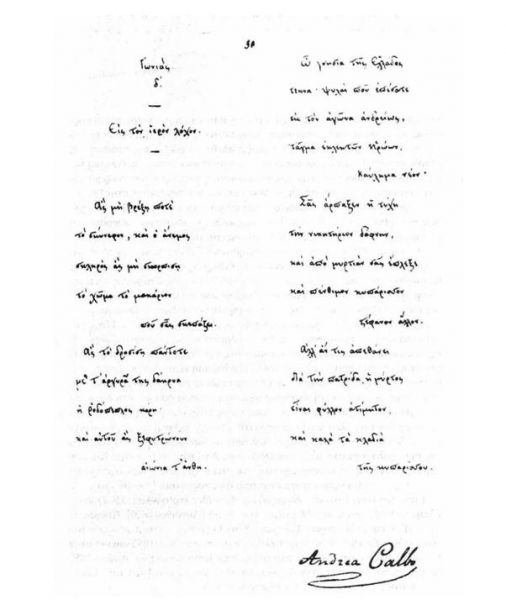 δ΄.
Εἰς τὸν ἱερὸν λόχον.
Ἂς μὴ βρέξῃ ποτὲ
τὸ σύννεφον, καὶ ὁ ἄνεμος
σκληρὸς ἂς μὴ σκορπίσῃ
τὸ χῶμα τὸ μακάριον
ποῦ σᾶς σκεπάζει.
Ἂς τὸ δροσίσῃ πάντοτε
μὲ τ᾽ ἀργυρᾶ της δάκρυα
ἡ ῥοδόπεπλος κόρη·
καὶ αὐτοῦ ἂς ξεφυτρώνουν
αἰώνια τ᾽ ἄνθη.
Ὦ γνήσια τῆς Ἑλλάδος
τέκνα· ψυχαὶ ποῦ ἐπέσατε
εἰς τὸν ἀγῶνα ἀνδρείως,
τάγμα ἐκλεκτῶν Ἡρώων,
καύχημα νέον·
Σᾶς ἅρπαξεν ἡ τύχη
τὴν νικητήριον δάφνην,
καὶ ἀπὸ μυρτιὰν σᾶς ἔπλεξε
καὶ πένθιμον κυπάρισσον
στέφανον ἄλλον.
Ἀλλ᾽ ἄν τις ἀπεθάνῃ
διὰ τὴν πατρίδα, ἡ μύρτος
εἶναι φύλλον ἀτίμητον,
καὶ καλὰ τὰ κλαδιὰ
τῆς κυπαρίσσου.
Andrea Calbo